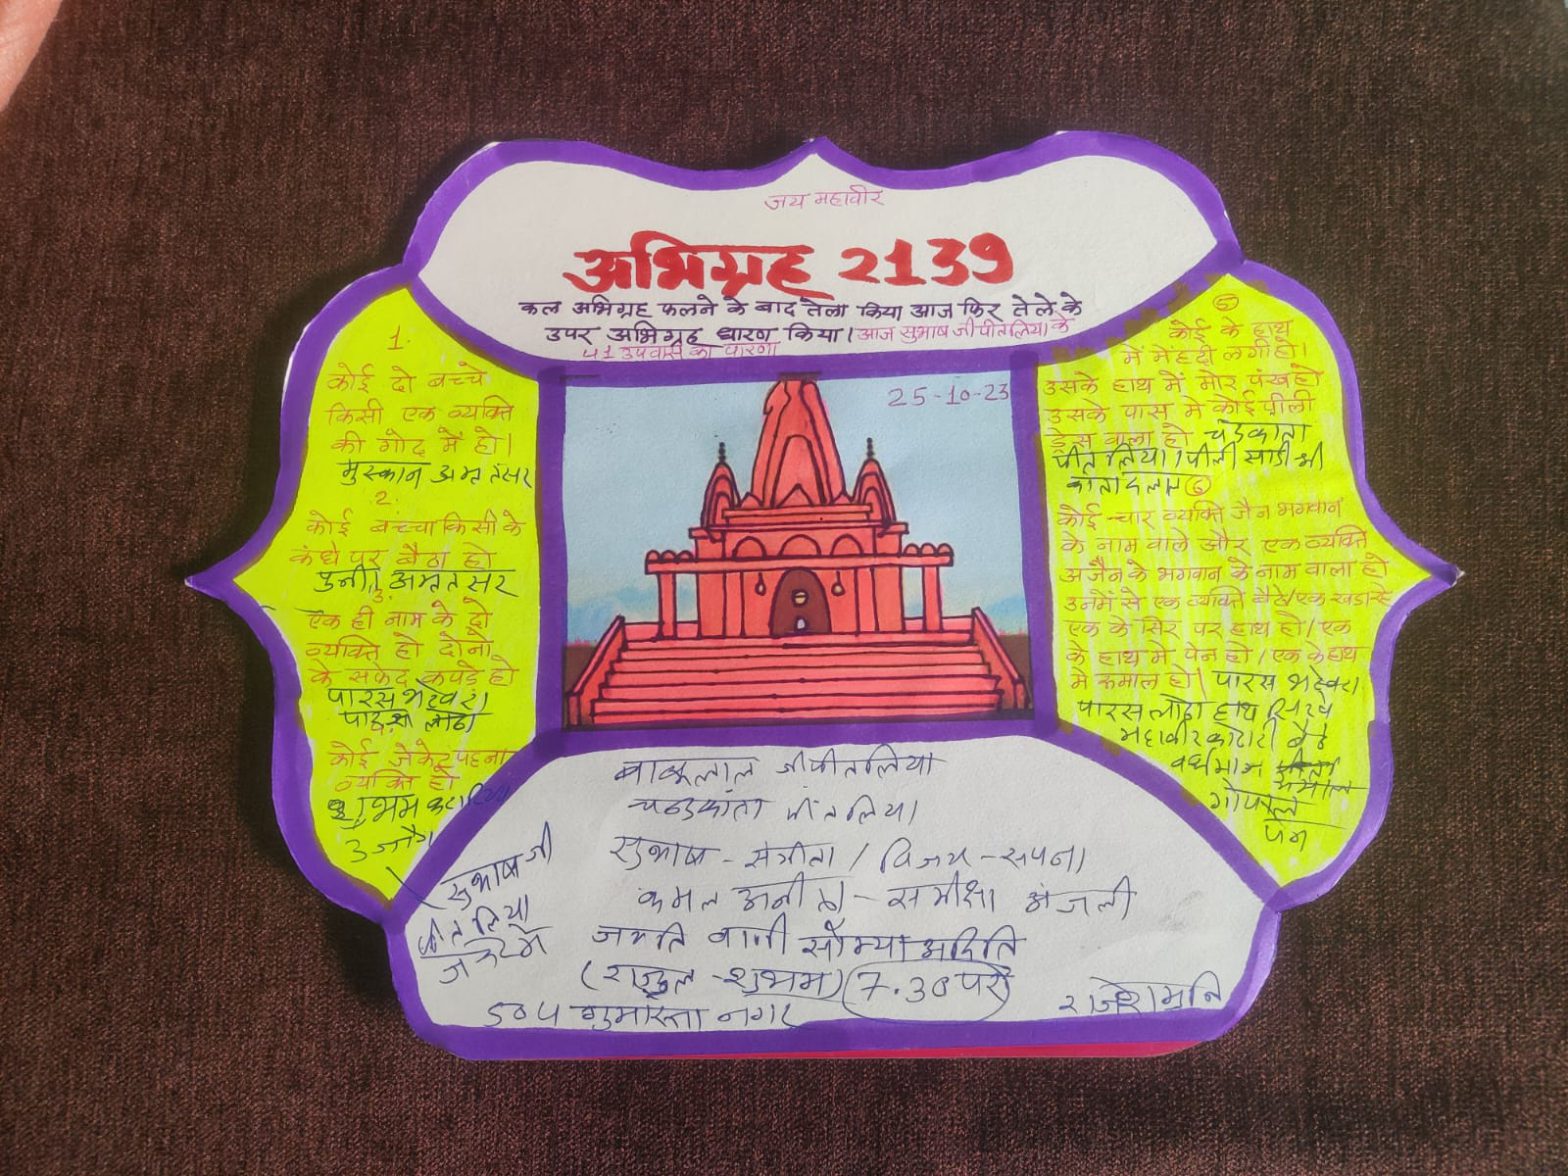 जय महावीर
अभिग्रह 2139
कल अभिग्रह फलने के बाद तेला किया आज फिर तेले के
उपर अभिग्रह धारण किया। आज सुभाष जी पीतलिया के
41 उपवास का पारणा
25-10-23
1.
कोई दो बच्चे
किसी एक व्यक्ति
की गोद मे हो।
मुस्कान अमृतसर
2.
कोई बच्चा किसी के
कंधे पर बैठा हो
अमृतसर
एक ही नाम के दो
व्यक्ति हो दोनो
के सफेद कपड़े हो
पारस
कोई जैकेट पहना
व्यक्ति हो
शुभम
कोई के हाथ
मे मेहंदी लगी हो।
उसके हाथ मे मोर पंख हो
उसके पास मे कोई पीली
ड्रेस वाला हो
पीतलिया।
कोई चार व्यक्ति जैन भगवान
के नाम वाले और एक व्यक्ति
अजैन के भगवान के नाम वाला हो
उनमें से एक व्यक्ति बैठे/एक खड़ा हो
एक के सिर पर हाथ हो/एक
के हाथ मे पेन हो/एक के हाथ
मे रुमाल हो। पारस
पारस लोढ़ा
वर्धमान
जैन
बाबूलाल जी पीतलिया
चन्द्रकांता पीतलिया
सुभाष - संगीता / विजय - सपना
कमल - समीक्षा अंजली
सौम्या अदिति
(राहुल - शुभम) (7.30 पर)
504 गुमास्ता नगर
सुभाष जी
पीतलिया
राजेशमुनि